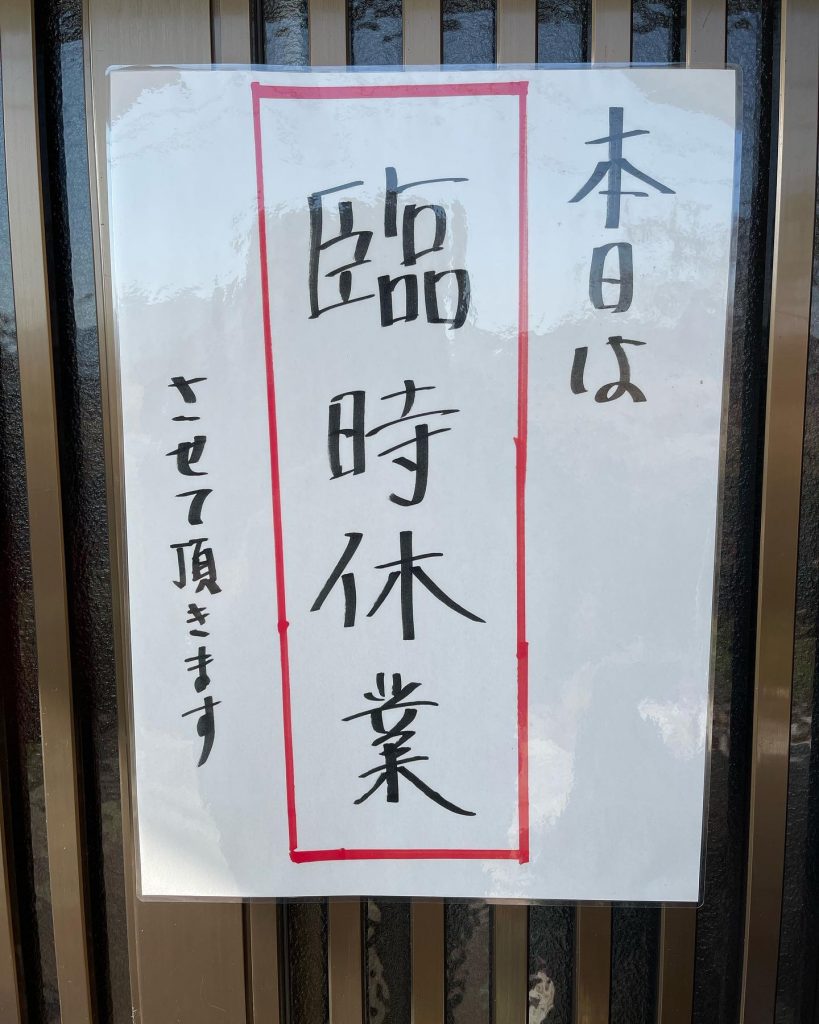 本日は
臨時休業
させて頂きます